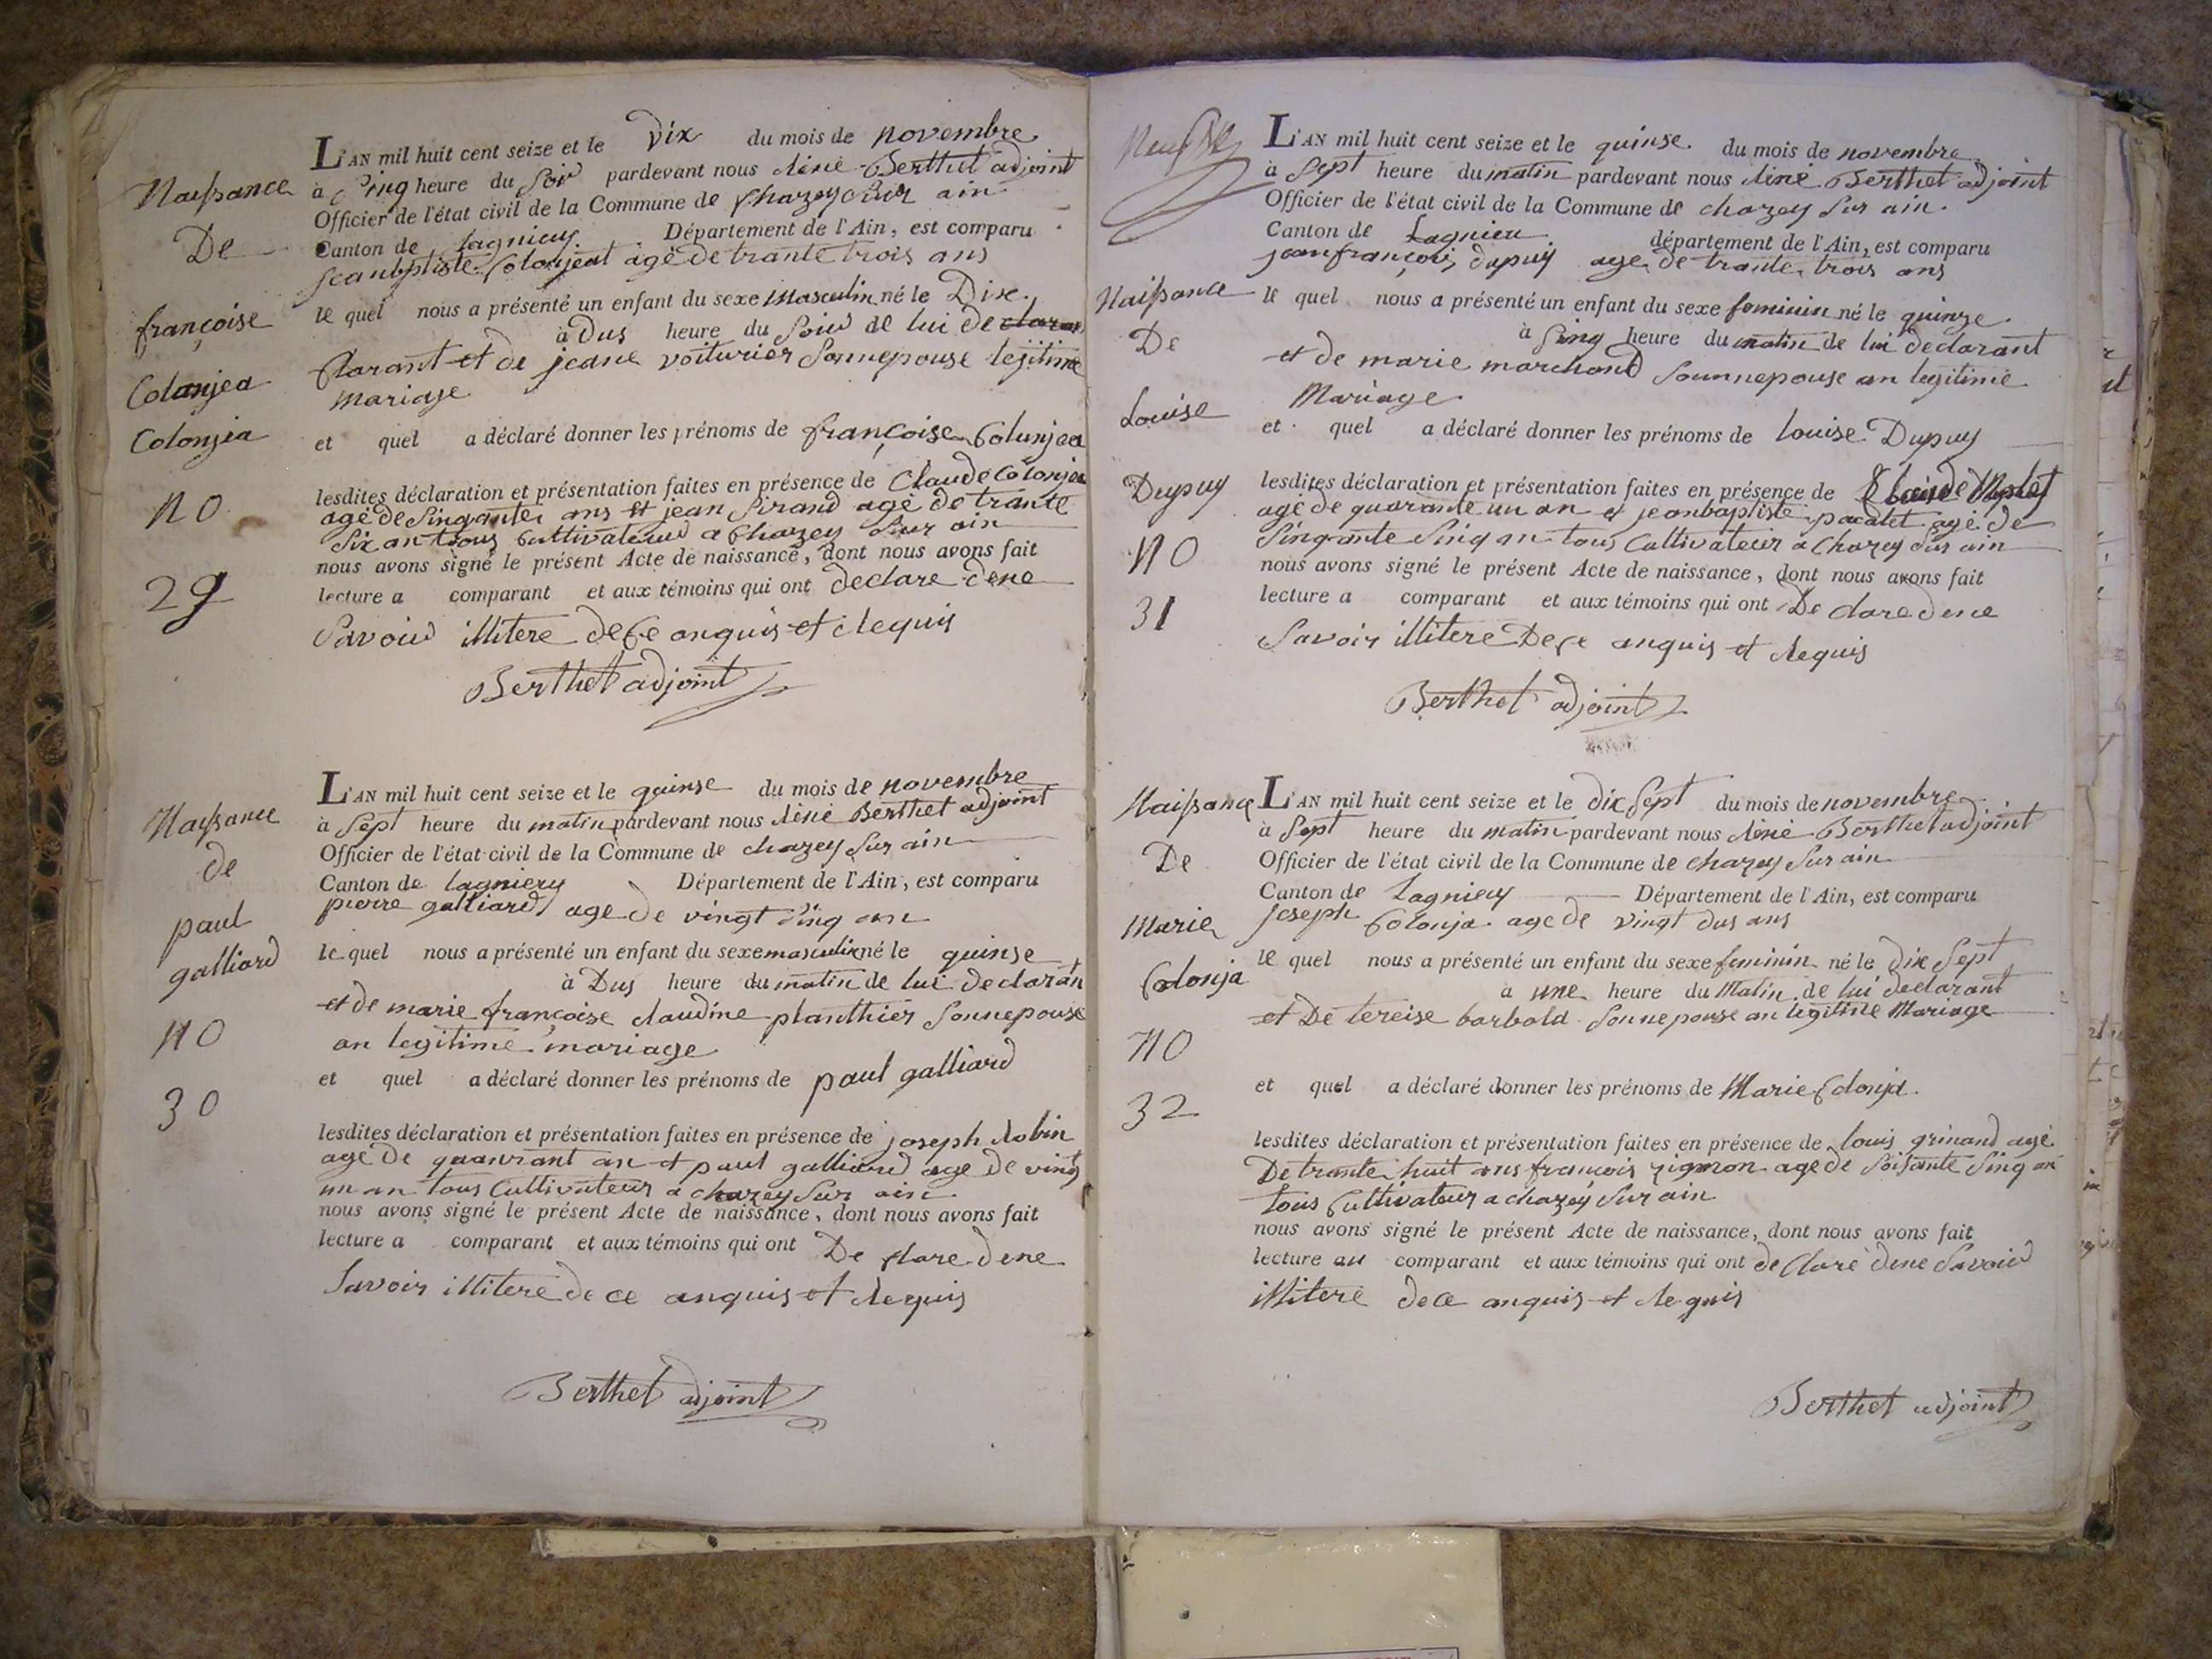 Naissance
De
françoise
Colanjea
Colonjea
NO
29
L'AN mil huit cent seize et le Dix du mois de novembre
à Sinq heure du Soir pardevant nous Aimé Berthet adjoint
Officier de l'état civil de la Commune de Chazey Sur ain
Canton de lagnieu Département de l'Ain, est comparu
Jeanbptiste Colonjeat agé de trante trois ans
le quel nous a présenté un enfant du sexe Masculin né le Dix
à Dus heure du Soir de lui de claran
Clarant et de jeane voiturier Sonnepouse legitime
Mariage
et quel a déclaré donner les prénoms de françoise Colunjea
lesdites déclaration et présentation faites en présence de Claude Colonjea
agé de Sinqante ans et jean Sirand agé de trante
Six an tous Cultivateur a Chazey Sur ain
nous avons signé le présent Acte de naissance, dont nous avons fait
lecture a comparant et aux témoins qui ont declare dene
Savoir illitere de Ce anquis et Requis
Berthet adjoint
Naissance
de
paul
galliard
NO
30
L'AN mil huit cent seize et le quinse du mois de novembre
à Sept heure du matin pardevant nous Aimé Berthet adjoint
Officier de l'état civil de la Commune de chazey Sur ain
Canton de lagnieu Département de l'Ain, est comparu
pierre galliard age de vingt Sinq an
le quel nous a présenté un enfant du sexe masculin né le quinse
à Dus heure du matin de lui declaran
et de marie françoise claudine planthier Sonnepouse
an legitime mariage
et quel a déclaré donner les prénoms de paul galliard
lesdites déclaration et présentation faites en présence de joseph Robin
agé de quanrant an et paul galliard age de vingt
un an tous Cultivateur a chazey Sur ain
nous avons signé le présent Acte de naissance, dont nous avons fait
lecture a comparant et aux témoins qui ont De Clare dene
Savoir illitere de ce anquis et Requis
Berthet adjoint
Naissance
De
Louise
Dupuy
NO
31
L'AN mil huit cent seize et le quinse du mois de novembre
à Sept heure du matin pardevant nous Aimé Berthet adjoint
Officier de l'état civil de la Commune de chazey Sur ain
Canton de Lagnieu département de l'Ain, est comparu
jeanfrançois dupuy age de trante trois ans
le quel nous a présenté un enfant du sexe feminin né le quinze
à Sinq heure du matin de lui declarant
et de marie marchand Sounnepouse an legitime
Mariage
et quel a déclaré donner les prénoms de louise Dupuy
lesdites déclaration et présentation faites en présence de Claude
agé de quarante un an et jeanbaptiste pacalet agé de
Sinqante Sinq an tous Cultivateur a Chazey Sur ain
nous avons signé le présent Acte de naissance, dont nous avons fait
lecture a comparant et aux témoins qui ont De clare dene
Savoir illitere De Ce anquis et Requis
Berthet adjoint
Naissance
De
Marie
Colonja
NO
32
L'AN mil huit cent seize et le dix Sept du mois de novembre
à Sept heure du matin pardevant nous Aimé Berthet adjoint
Officier de l'état civil de la Commune de chazey Sur ain
Canton de Lagnieu Département de l'Ain, est comparu
joseph Colonja age de vingt dus ans
le quel nous a présenté un enfant du sexe feminin né le dix Sept
à une heure du Matin de lui declarant
et De tereise barbold Sonnepouse an legitine Mariage
et quel a déclaré donner les prénoms de Marie Colonja
lesdites déclaration et présentation faites en présence de louis grinand agé
De trante huit ans francois gignon age de Soisante Sinq an
tous Cultivateur a chazey Sur ain
nous avons signé le présent Acte de naissance, dont nous avons fait
lecture au comparant et aux témoins qui ont de Claré dene Savoir
illitere de ce anquis et Requis
Berthet adjoint